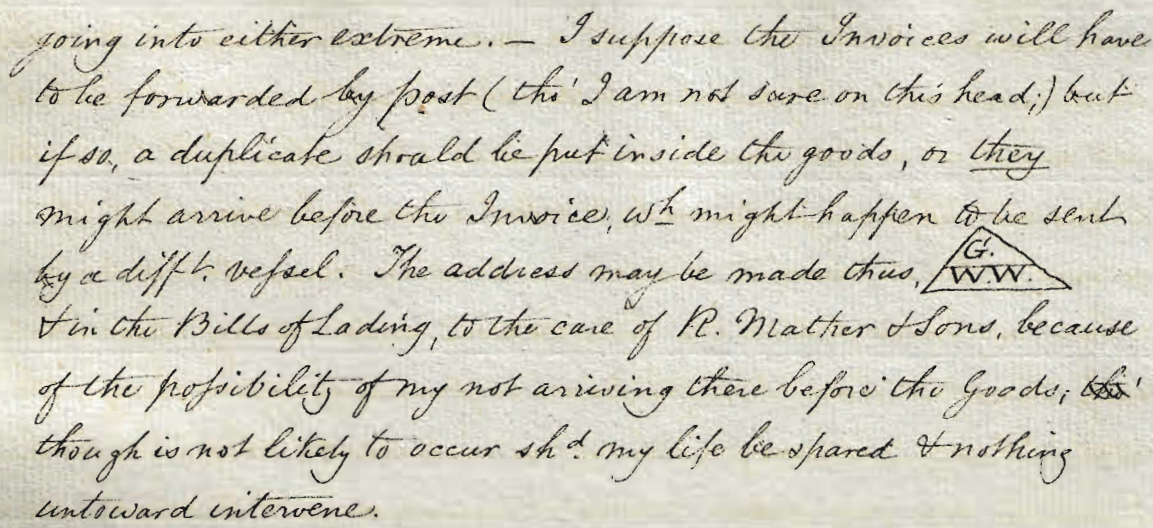 going into either extreme. — I suppose the Invoices will have
to be forwarded by post (tho' I am not sure on this head;) but
if so, a duplicate should be put inside the goods, or they
might arrive before the Invoice, wh might happen to be sent
by a difft. vessel. The address may be made thus, G. W.W.
& in the Bills of Lading, to the care of R. Mather & Sons, because
of the possibility of my not arriving there before the Goods; tho'
though is not likely to occur shd. my life be spared & nothing
untoward intervene.